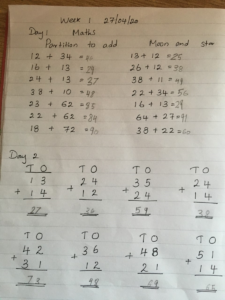 Week 1 27/04/20
Day 1 Maths
Partition to add
12 + 34 = 46 13 + 12 = 25
16 + 13 = 29 26 + 12 = 38
24 + 13 = 37 38 + 11 = 49
38 + 10 = 48 22 + 34 = 56
23 + 62 = 85 16 + 13 = 29
22 + 62 = 84 64 + 27 = 91
18 + 72 = 90 38 + 22 = 60
Day 2
T O T O T O T O
1 3 2 4 3 5 2 4
+ 1 4 + 1 2 + 2 4 + 1 4
27 36 59 38
T O T O T O T O
4 2 3 6 4 8 5 1
+ 3 1 + 1 2 + 2 1 + 1 4
73